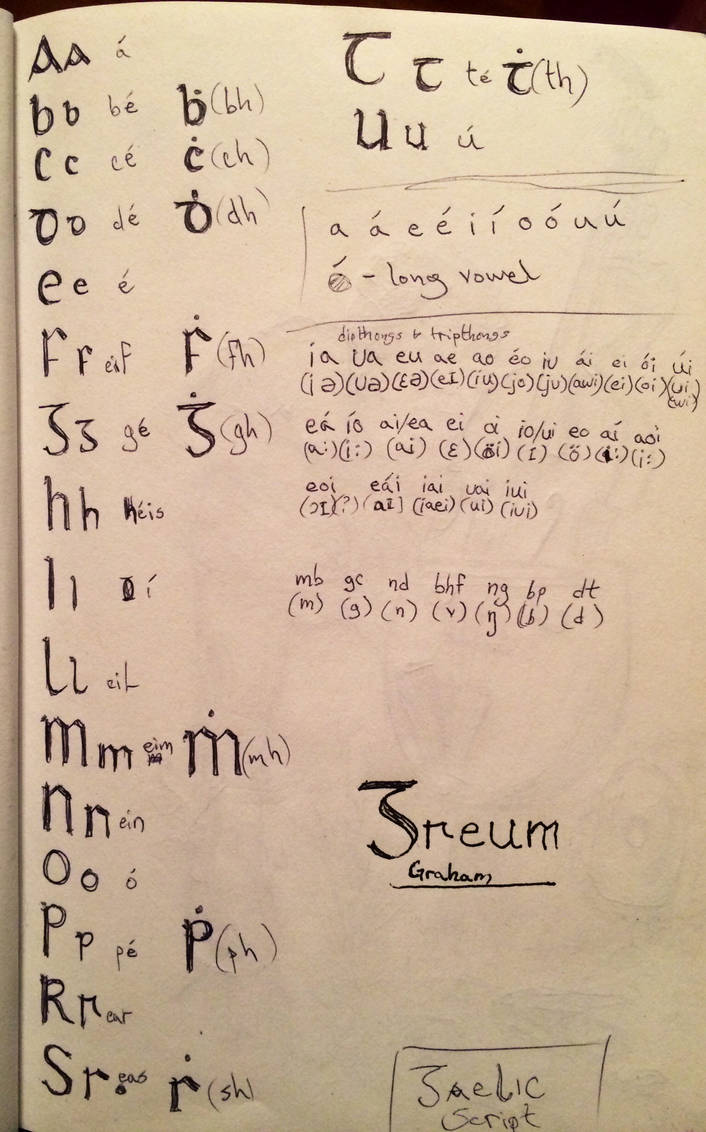 A a á
b b bé ḃ (bh)
C c cé ċ (ch)
D d dé ḋ (dh)
e e é
F f eif ḟ (fh)
Ᵹ ᵹ gé Ᵹ̇ (gh)
h h héis
I ı í
L l eil
m m eim ṁ (mh)
n n ein
O o ó
P p pé ṗ (ph)
R r ear
S ſ eas ṡ (sh)
T t té ṫ (th)
U u ú
a á e é i í o ó u ú
- long vowel
dipthongs & tripthongs
ía ua eu ae ao éo iu ái ei ói úi
(iə) (uə) (ɛə) (eɪ) (iu) (jo) (ju) (awi) (ei) (oi) (ui) (wi)
eá ío ai/ea ei oi io/ui eo aí aoi
(a:) (i:) (ai) (ɛ) (i) (í) (ŏ) (i:) (i:)
eoi eái iai uai iui
(ɔɪ)(?) (aɪ] (iaei) (ui) (iui)
mb gc nd bhf ng bp dt
(m) (g) (n) (v) (ŋ) (b) (d)
Ᵹreum
Graham
Ᵹaelic
Script